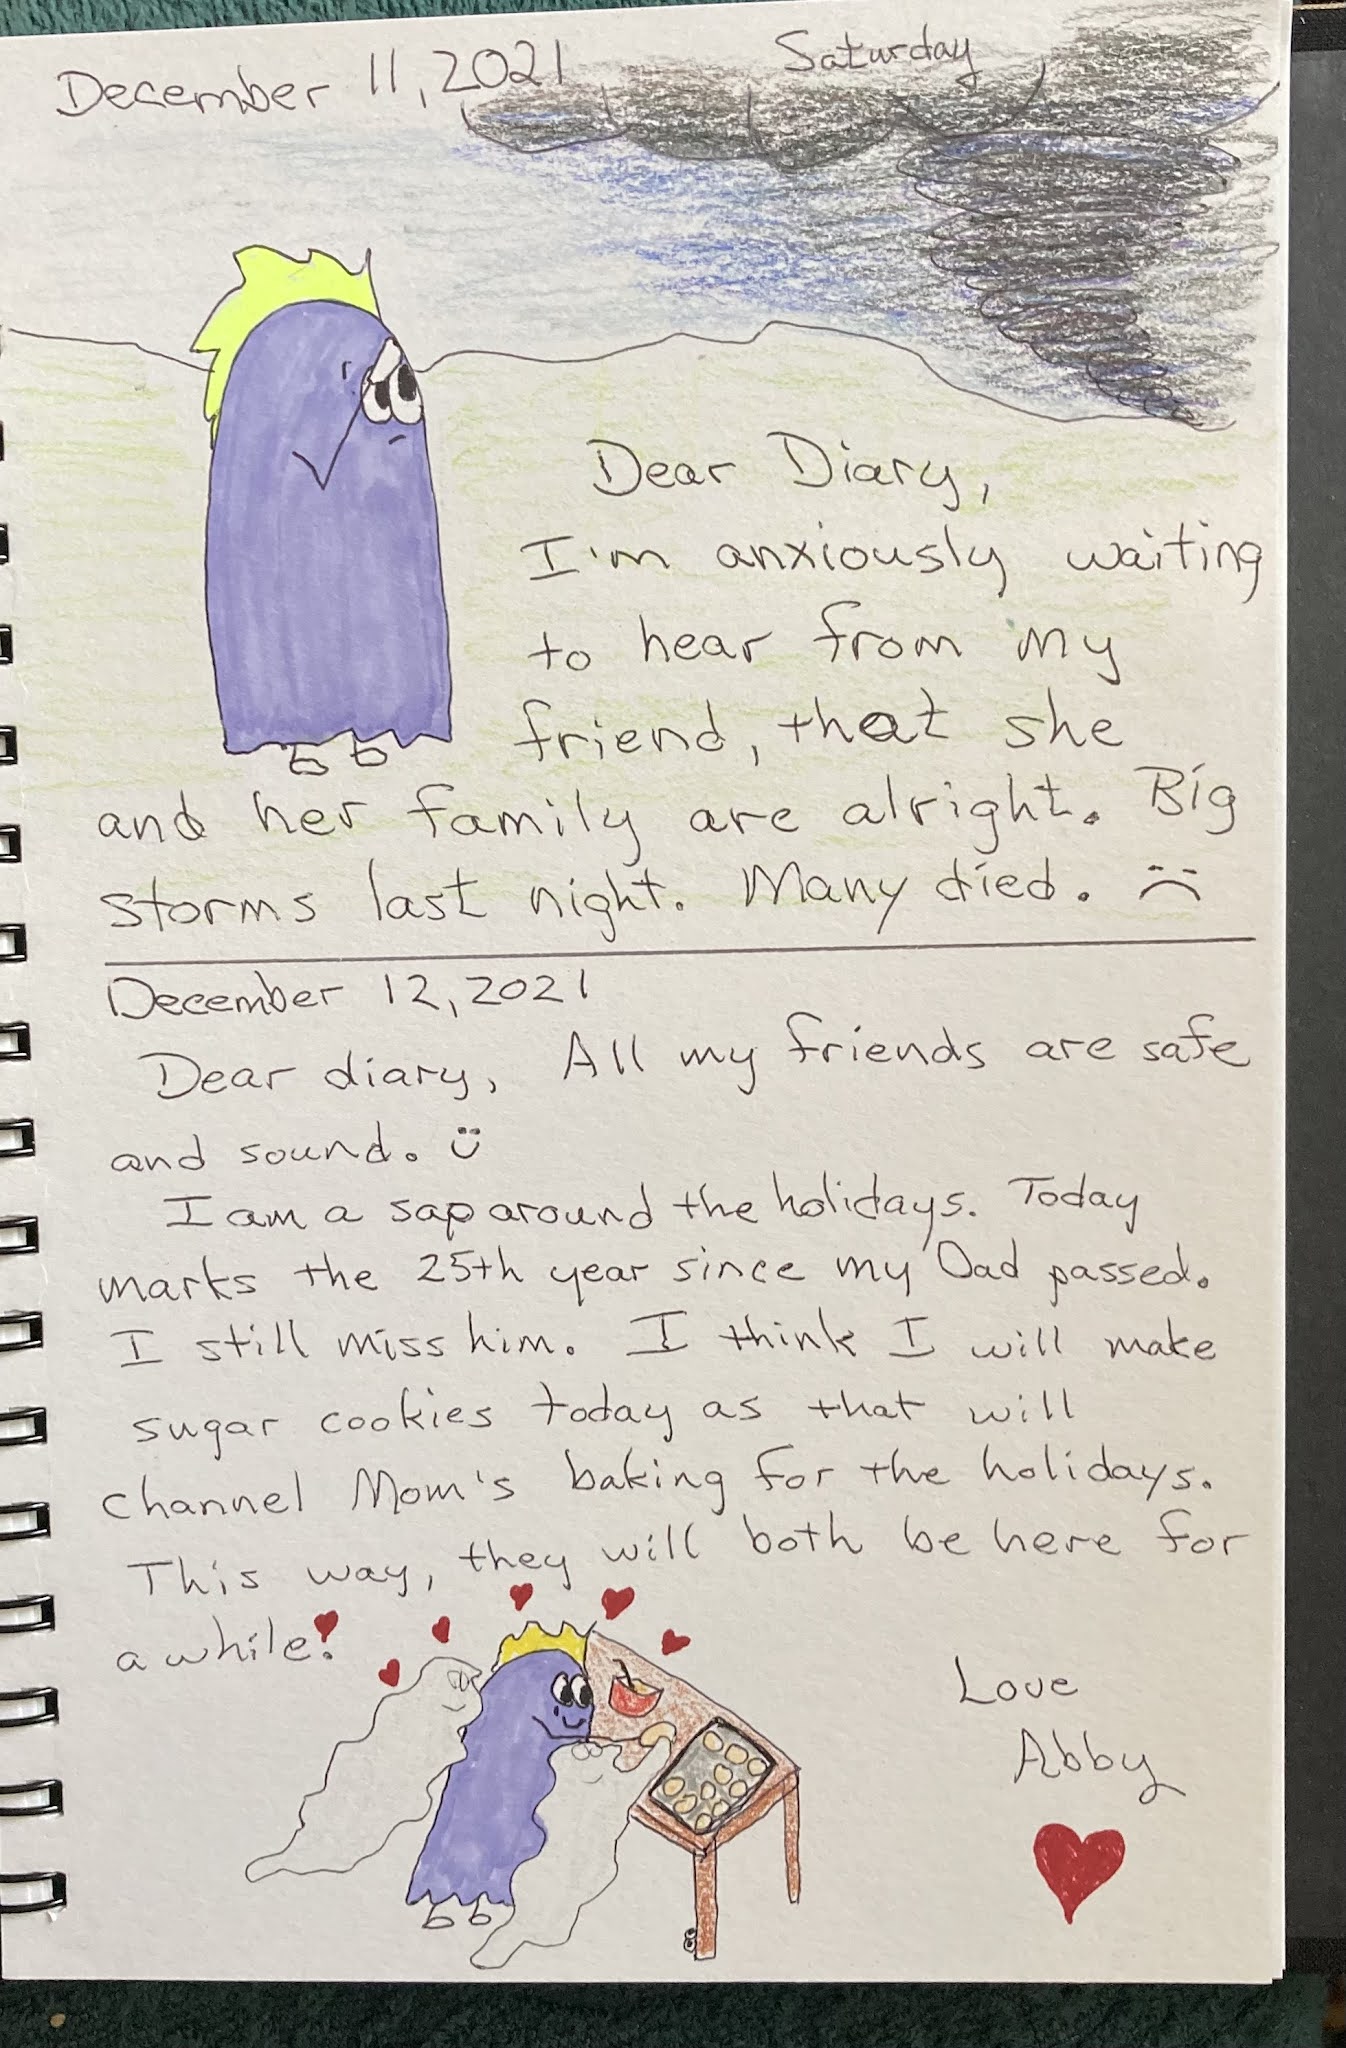 December 11, 2021 Saturday
Dear Diary,
I'm anxiously waiting
to hear from my
friend, that she
and her family are alright. Big
storms last night. Many died. ☹
December 12, 2021
Dear diary, All my friends are safe
and sound. ☺
I am a sap around the holidays. Today
marks the 25th year since my Dad passed.
I still miss him. I think I will make
sugar cookies today as that will
channel Mom's baking for the holidays.
This way, they will both be here for
awhile!
Love
Abby